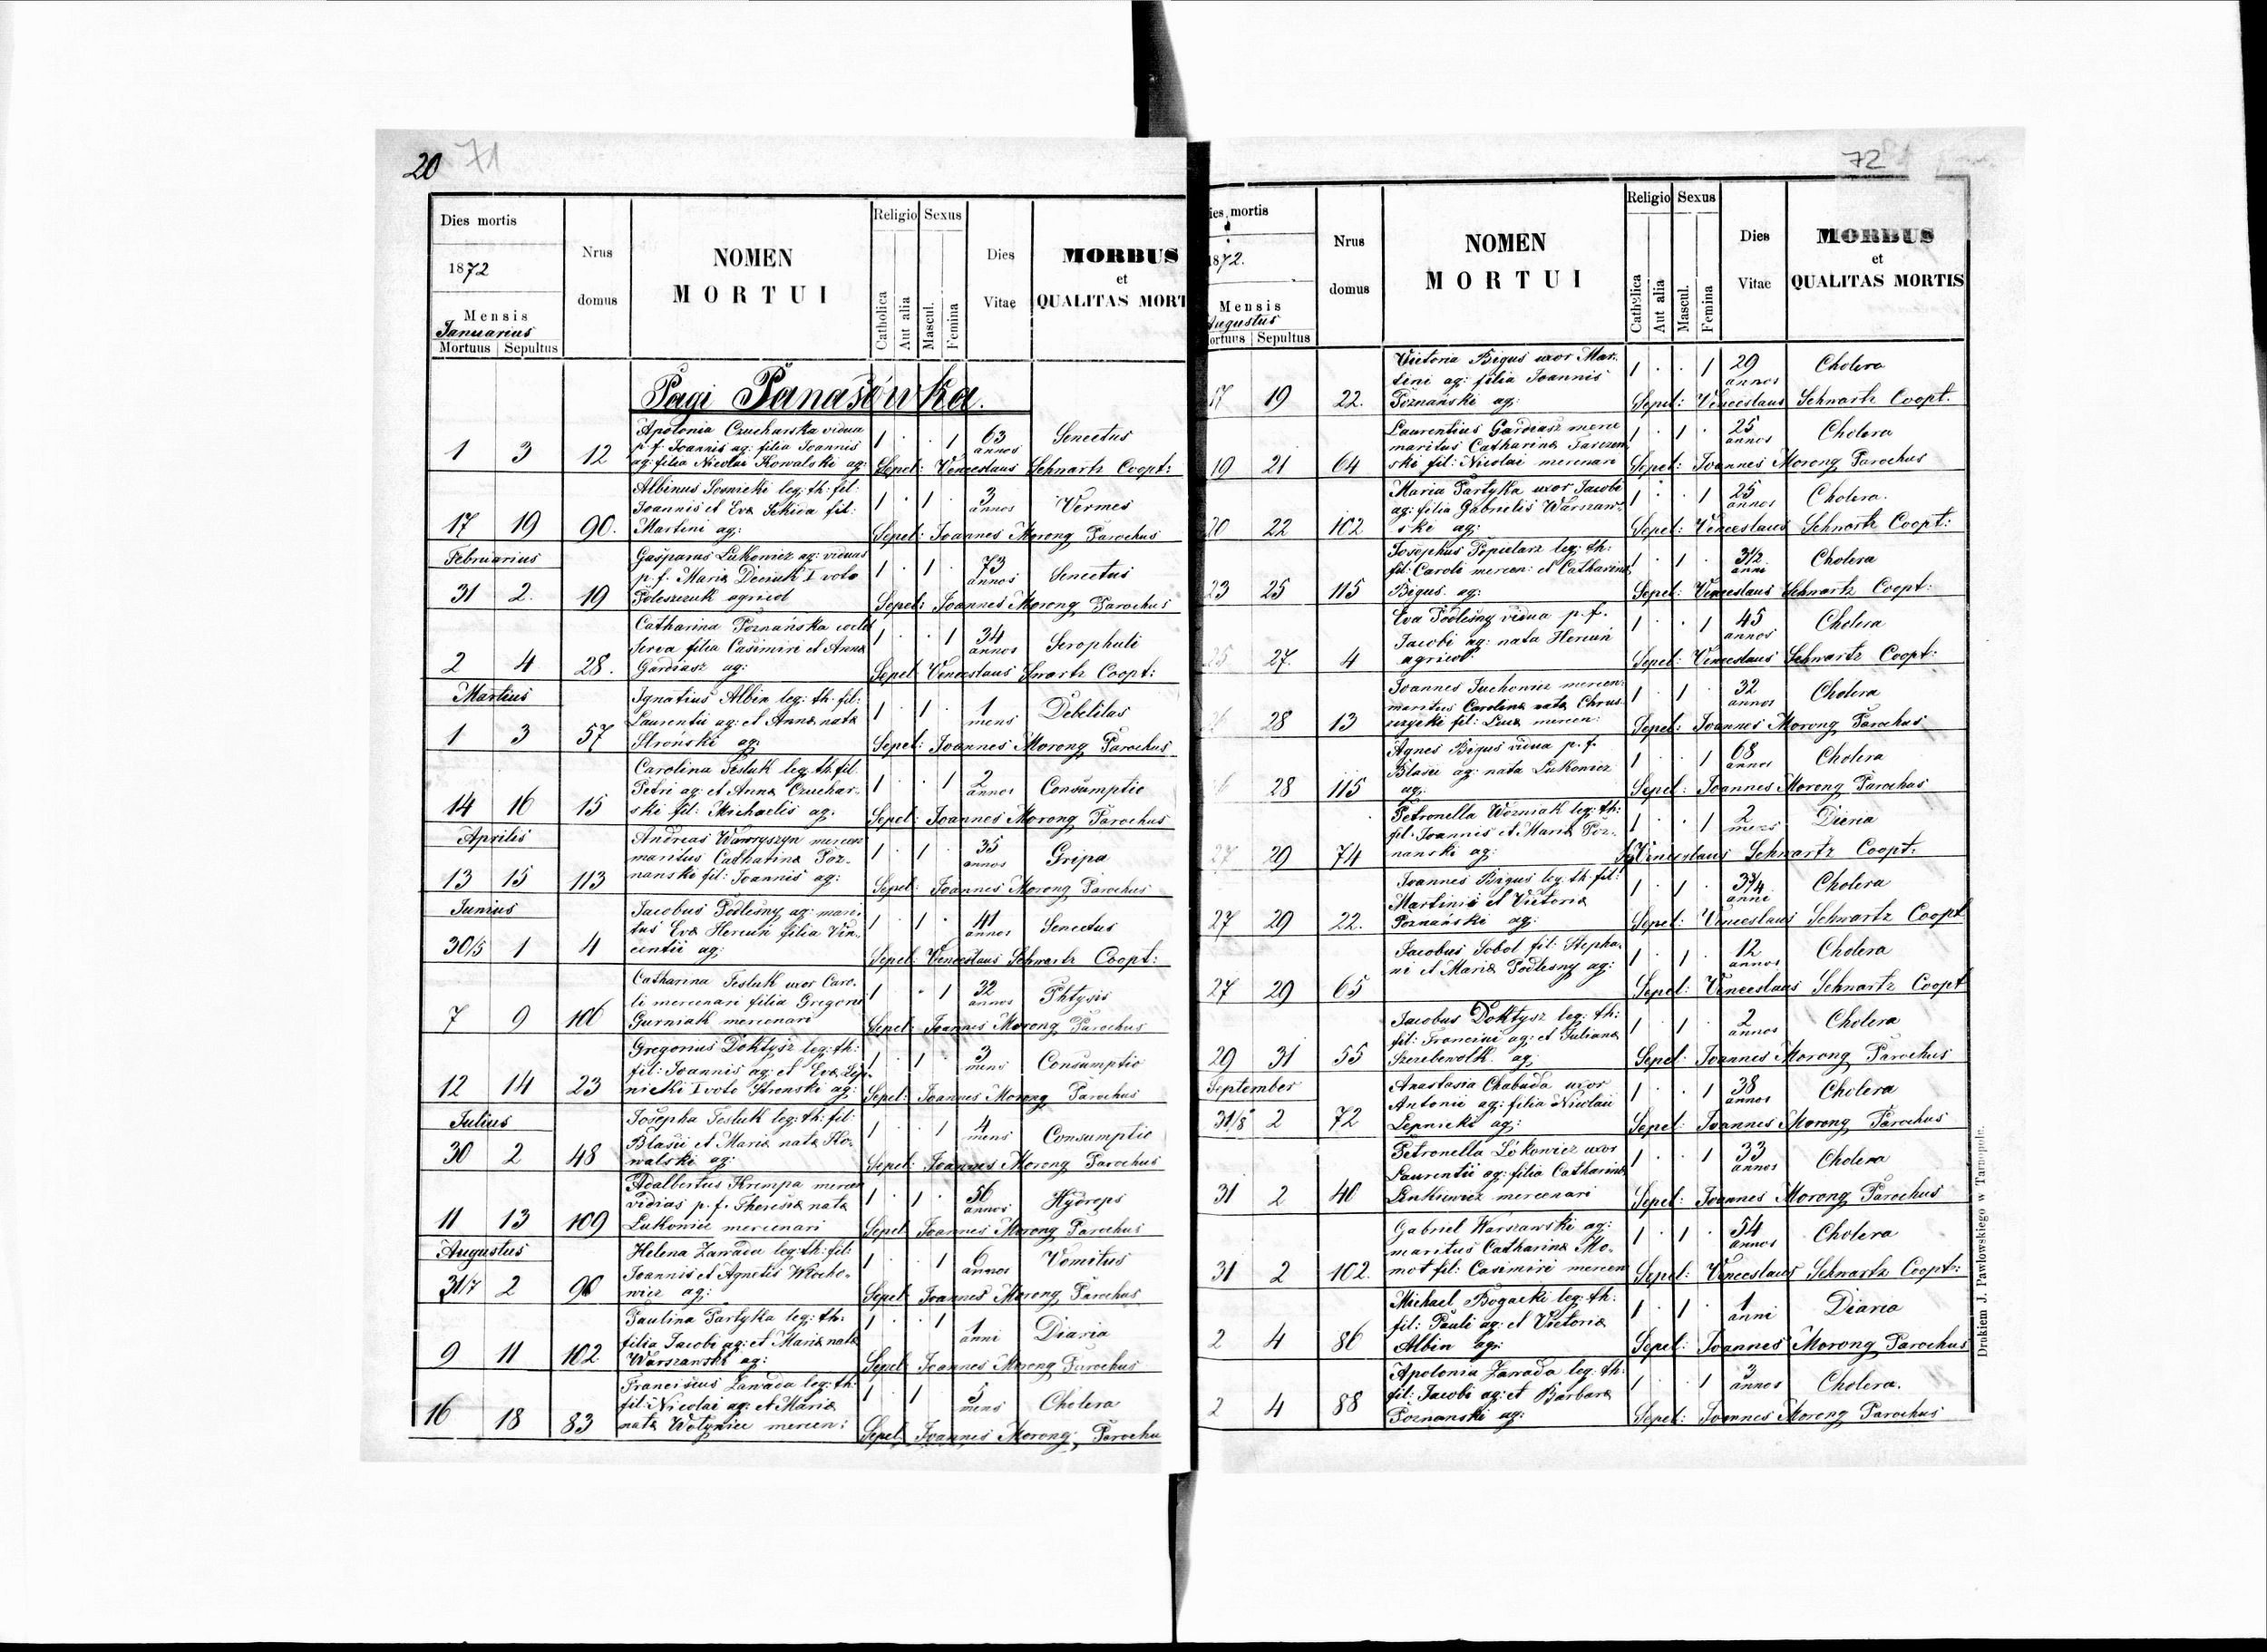 20 71
Dies mortis
1872
Mensis
Januarius
Mortuus Sepultus
Nrus
domus
NOMEN
MORTUI
Religio Sexus
Catholica
Aut alia
Mascul.
Femina
Dies
Vitae
MORBUS
et
QUALITAS MORT
Pagi Panasówka.
Apolonia Czucharska vidua
p. f. Joannis ag: filia Joannis
ag: filia Nicolai Kowalski ag:
1 3 12 1 . . 1 63 annos Senectus
Sepel: Venceslaus Schwartz Coopt:
Albinus Sosnicki leg: th: fil:
Joannis et Eva Sekida fil:
Martini ag:
17 19 90. 1 . 1 . 3 annos Vermes
Sepel: Joannes Morong Parochus
Februarius
Gasparus Lukowicz ag: viduus
p. f. Maria Deciuk I voto
Poleszczuk agricol
31 2. 19 1 . 1 . 73 annos Senectus
Sepel: Joannes Morong Parochus
Catharina Poznańska coeld
serva filia Casimiri et Anna
Gardiasz ag:
2 4 28. 1 . . 1 34 annos Scrophuli
Sepel: Venceslaus Swartz Coopt:
Martius
Ignatius Albin leg: th: fil:
Laurentii ag: et Anna nata
Stroński ag:
1 3 57 1 . 1 . 1 mens Debelitas
Sepel: Joannes Morong Parochus
Carolina Tesluk leg: th: fil
Petri ag: et Anna Czuchar-
ski fil: Michaelis ag.
14 16 15 1 . . 1 2 annos Consumptio
Sepel: Joannes Morong Parochus
Aprilis
Andreas Wawryszyn mercen
maritus Catharina Poz-
nanski fil: Joannis ag:
13 15 113 1 . 1 . 35 annos Gripa
Sepel: Joannes Morong Parochus
Junius
Jacobus Podlesny ag: mari-
tus Eva Hercuń filia Vin-
centii ag:
30/5 1 4 1 . 1 . 41 annos Senectus
Sepel: Venceslaus Schwartz Coopt:
Catharina Tesluk uxor Caro-
li mercenari filia Gregorii
Gurniak mercenari
7 9 106 1 . . 1 32 annos Phtysis
Sepel: Joannes Morong Parochus
Gregorius Doktysz leg: th:
fil: Joannis ag: et Eva Lep-
nicki I voto Stronski ag:
12 14 23 1 . 1 . 3 mens Consumptio
Sepel: Joannes Morong Parochus
Julius
Josepha Tesluk leg: th: fil:
Blasii et Maria nata Ko-
walski ag:
30 2 48 1 . . 1 4 mens Consumptio
Sepel: Joannes Morong Parochus
Adalbertus Krempa mercen
vidias p. f. Theresia nata
Lukowicz mercenari
11 13 109 1 . 1 . 56 annos Hydrops
Sepel: Joannes Morong Parochus
Augustus
Helena Zawada leg: th: fil:
Joannis et Agnetis Włocho-
wicz ag:
31/7 2 90 1 . . 1 6 annos Vomitus
Sepel: Joannes Morong Parochus
Paulina Partyka leg: th:
filia Jacobi ag: et Maria nata
Warszanski ag:
9 11 102 1 . . 1 1 anni Diaria
Sepel: Joannes Morong Parochus
Franciscus Zawada leg: th:
fil: Nicolai ag: et Maria
nata Wołyniec mercen:
16 18 83 1 . 1 5 mens Cholera
Sepel: Joannes Morong Parochu
72
ies mortis
1872.
Mensis
Augustus
ortuus Sepultus
Nrus
domus
NOMEN
MORTUI
Religio Sexus
Catholica
Aut alia
Mascul.
Femina
Dies
Vitae
MORBUS
et
QUALITAS MORTIS
Victoria Bigus uxor Mar-
tini ag: filia Joannis
Poznański ag:
17 19 22. 1 . . 1 29 annos Cholera
Sepel: Venceslaus Schwartz Coopt.
Laurentius Gardiasz merce
maritus Catharina Tarczen
ski fil: Nicolai mercenari
19 21 64 1 . 1 . 25 annos Cholera
Sepel: Joannes Morong Parochus
Maria Partyka uxor Jacobi
ag: filia Gabrielis Warszaw-
ski ag:
20 22 102 1 . . 1 25 annos Cholera.
Sepel: Venceslaus Schwartz Coopt:
Josephus Popielarz leg: th:
fil: Caroli mercen: et Catharina
Bigus. ag:
23 25 115 1 . 1 . 3 1/2 anni Cholera
Sepel: Venceslaus Schwartz Coopt:
Eva Podlesny vidua p. f.
Jacobi ag: nata Hercuń
agricol:
25 27. 4 1 . . 1 45 annos Cholera
Sepel: Venceslaus Schwartz Coopt:
Joannes Juchowicz mercen:
maritus Carolina nata Chrus-
szycki fil: Luca mercen:
26 28 13 1 . 1 . 32 annos Cholera
Sepel: Joannes Morong Parochus
Agnes Bigus vidua p. f.
Blasii ag: nata Lukowicz
ag:
28 115 1 . . 1 68 annos Cholera
Sepel: Joannes Morong Parochus
Petronella Wozniak leg: th:
fil: Joannis et Maria Poz-
nanski ag:
27 29 74 1 . . 1 2 mens Dieria
Venceslaus Schwartz Coopt:
Joannes Bigus leg: th: fil:
Martinii et Victoria
Poznański ag:
27 29 22. 1 . 1 . 3 1/4 anni Cholera
Sepel: Venceslaus Schwartz Coopt
Jacobus Sobol fil: Stepha-
ni et Maria Podlesny ag:
27 29 65 1 . 1 . 12 annos Cholera
Sepel: Venceslaus Schwartz Coopt
Jacobus Doktysz leg: th:
fil: Francini ag: et Juliana
Szczebewolk ag:
29 31 55 1 . 1 . 2 annos Cholera
Sepel: Joannes Morong Parochus
September
Anastasia Chabuda uxor
Antonii ag: filia Nicolaii
Lepnicki ag:
31/8 2 72 1 . . 1 38 annos Cholera
Sepel: Joannes Morong Parochus
Petronella Lókowicz uxor
Laurentii ag: filia Catharina
Linkiewicz mercenari
31 2 40 1 . . 1 33 annos Cholera
Sepel: Joannes Morong Parochus
Gabriel Warszawski ag:
maritus Catharina Mo-
mot fil: Casimiri mercen
31 2 102. 1 . 1 . 54 annos Cholera
Sepel: Venceslaus Schwartz Coopt:
Michael Bogacki leg: th:
fil: Pauli ag: et Victoria
Albin ag:
2 4 86 1 . 1 . 1 anni Diaria
Sepel: Joannes Morong Parochus
Apolonia Zawada leg: th:
fil: Jacobi ag: et Barbara
Poznanski ag:
2 4 88 1 . . 1 3 annos Cholera.
Sepel: Joannes Morong Parochus
Drukiem J. Pawłowskiego w Tarnopolu.